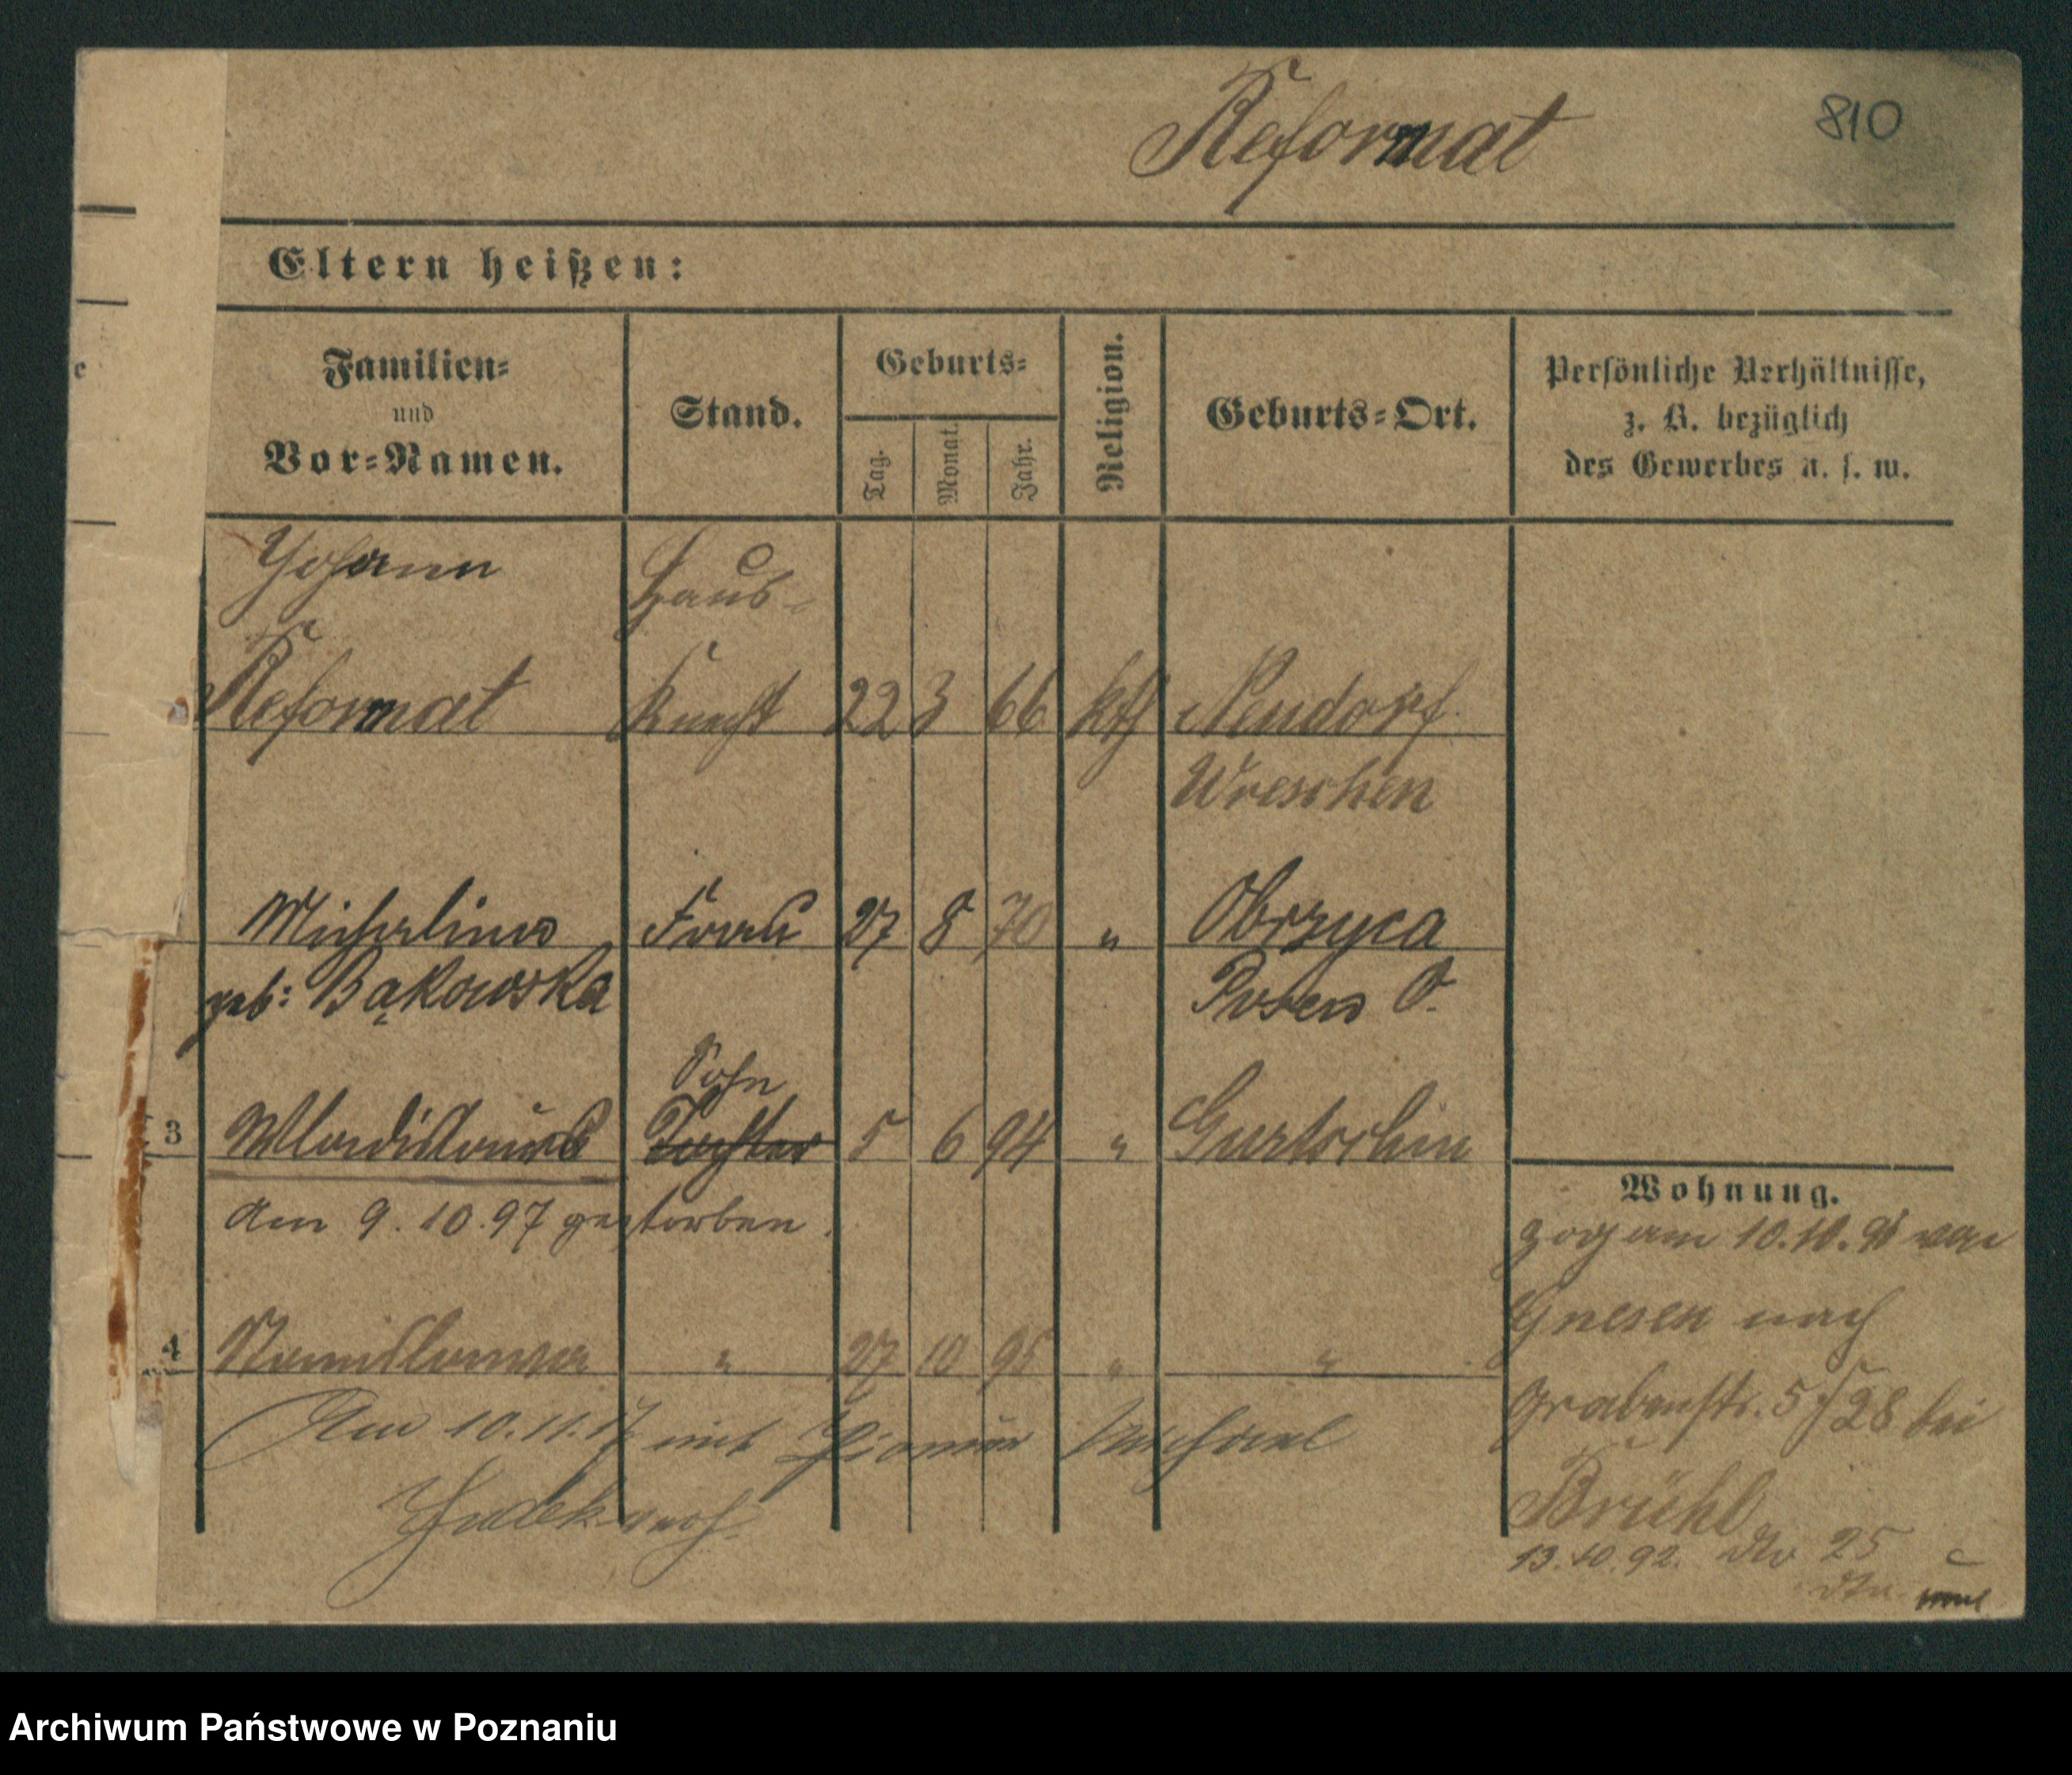 Reformat
810
Eltern heißen:
Familien=
und
Vor=Namen.
Stand.
Geburts=
Tag.
Monat.
Jahr.
Religion.
Geburts=Ort.
Persönliche Verhältnisse,
z. B. bezüglich
des Gewerbes u. s. w.
Johann Haus-
Reformat Knecht 22 3 66 kth Neudorf
Wreschen
Michalina Frau 27 8 70 " Obrzyca
geb: Bąkowska Posen O.
Sohn
3 Wladislaus Tochter 5 6 94 " Gurtschin
am 9.10.97 gestorben.
4 Stanislawa " 27 10 95 " "
Am 10.11.17 mit Pionier Michael
verh.
Wohnung.
zog am 10.10.91 von
Gnesen nach
Grabenstr. 5/28 bei
Brühl
13.10.92. 25
Archiwum Państwowe w Poznaniu